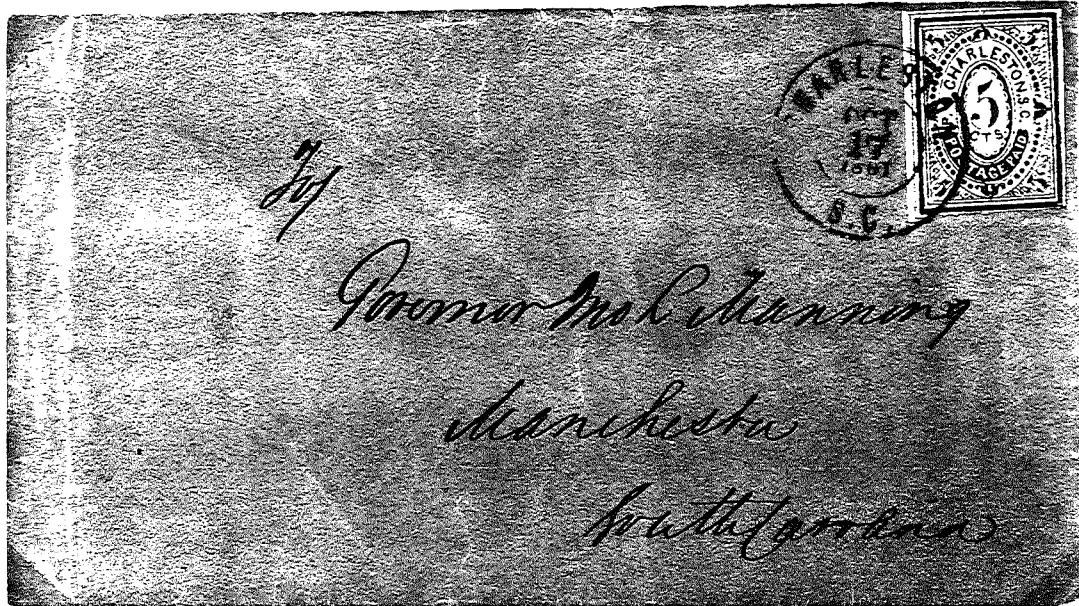 CHARLESTON
OCT
17
1861
S.C.
CHARLESTON S.C.
5
CTS
POSTAGE PAID
To/
Governor Jno L Manning
Manchester
South Carolina